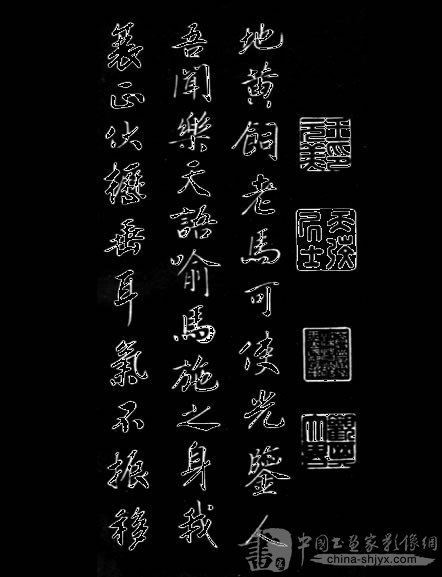 地黄飼老馬可使光鑒人
吾聞樂天語喻馬施之身我
衰正伏櫪垂耳氣不振移
天弢居士
中国书画家影像網
china-shjyx.com